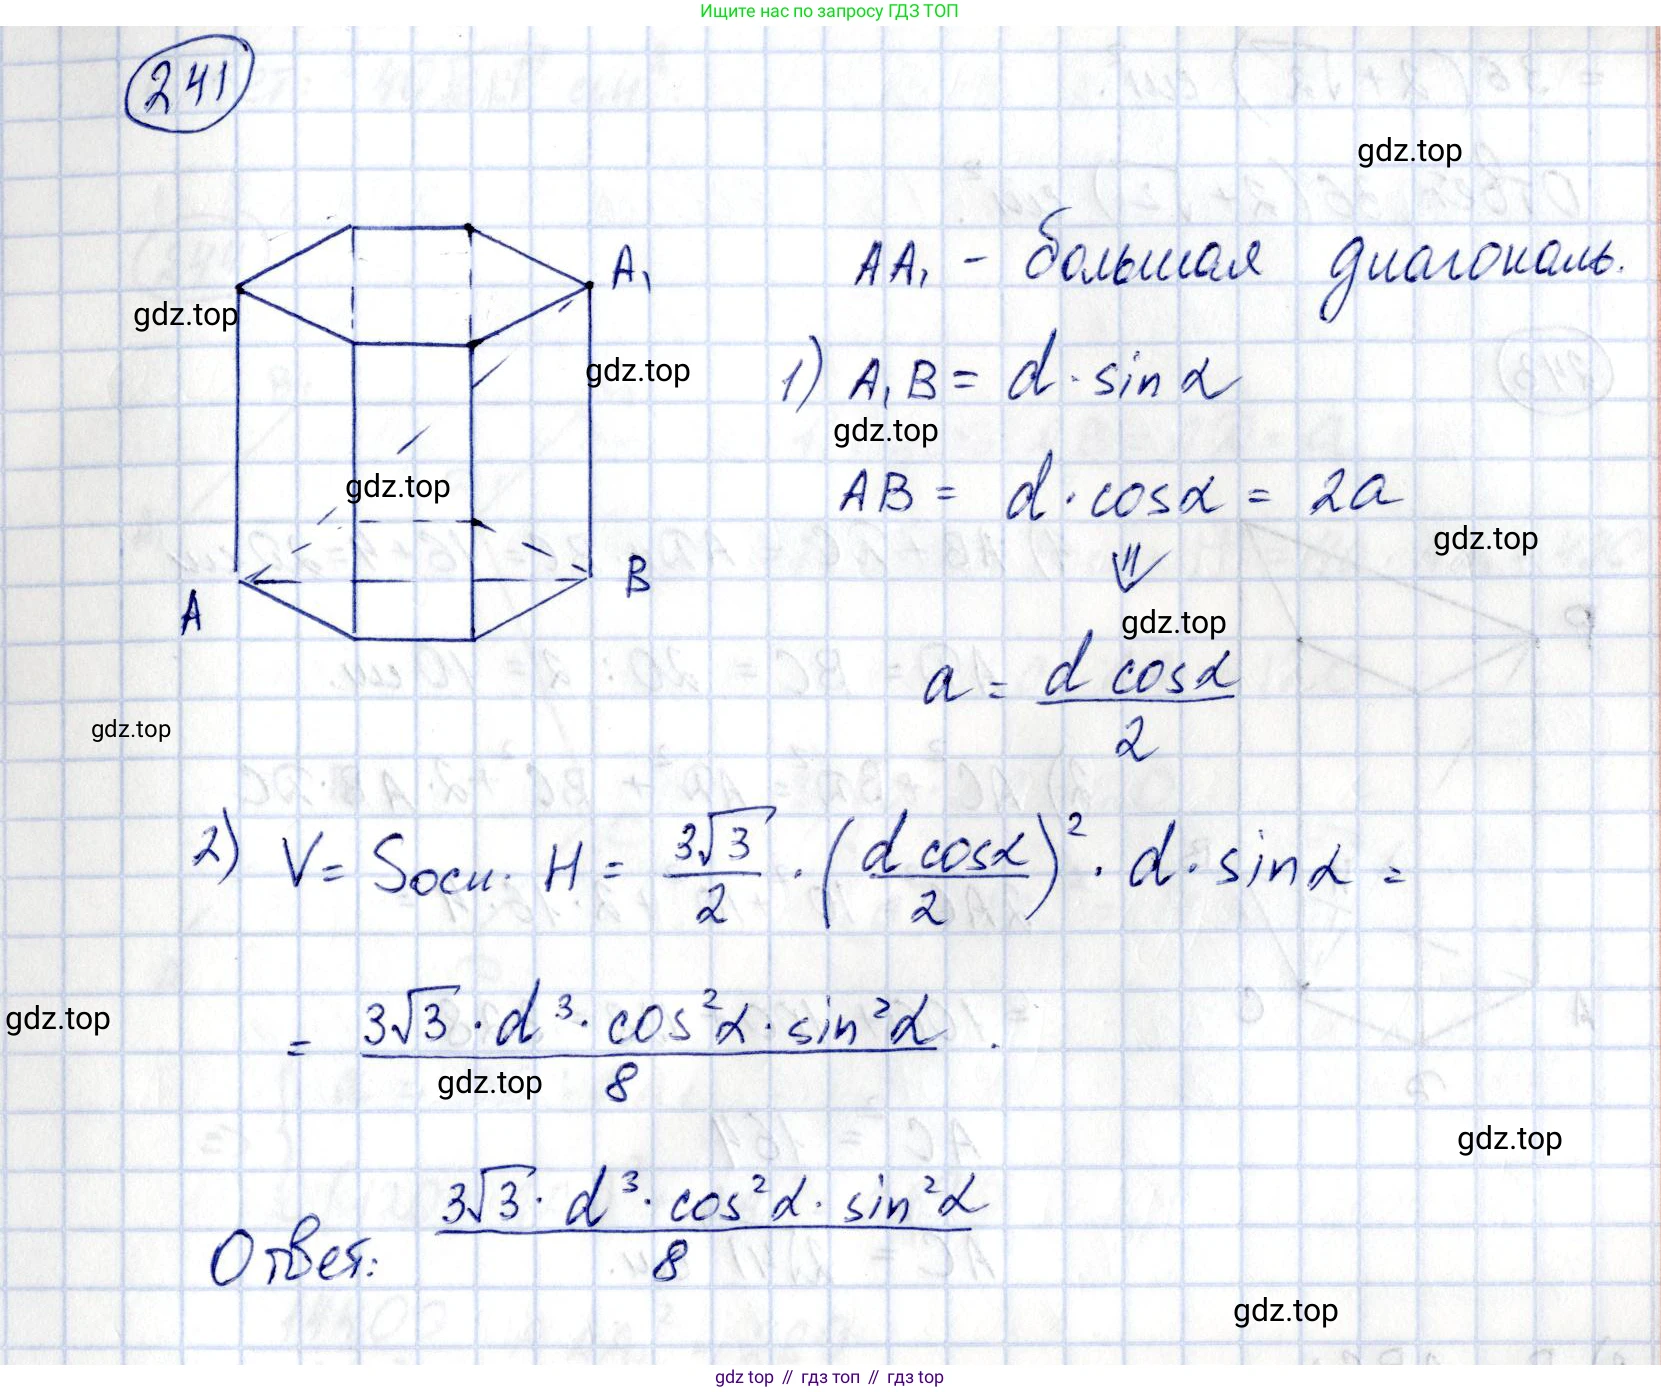 Ищите нас по запросу ГДЗ ТОП
241
gdz.top
A₁
AA₁ - большая диагональ.
gdz.top
gdz.top
1) A₁B = d · sin α
gdz.top
gdz.top
AB = d · cos α = 2a
gdz.top
A
B
⇓
gdz.top
a = d cos α / 2
gdz.top
2) V = Sосн. · H = 3√3/2 · (d cos α / 2)² · d · sin α =
gdz.top
= 3√3 · d³ · cos²α · sin²α / 8 .
gdz.top
gdz.top
Ответ: 3√3 · d³ · cos²α · sin²α / 8
gdz.top
gdz top // гдз топ // гдз top